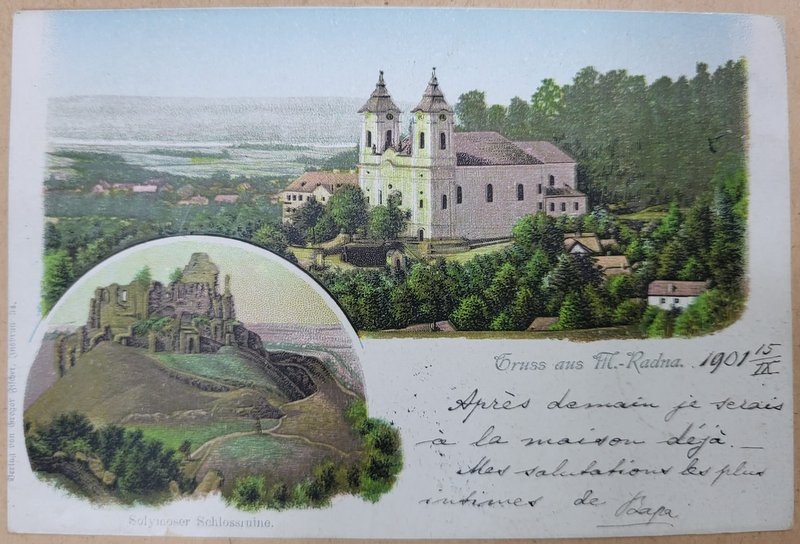 Gruss aus M.-Radna. 1901 15/IX
Après demain je serais
à la maison déjà. —
Mes salutations les plus
intimes de Papa
Solymoser Schlossruine.
Verlag von Gregor Fischer,